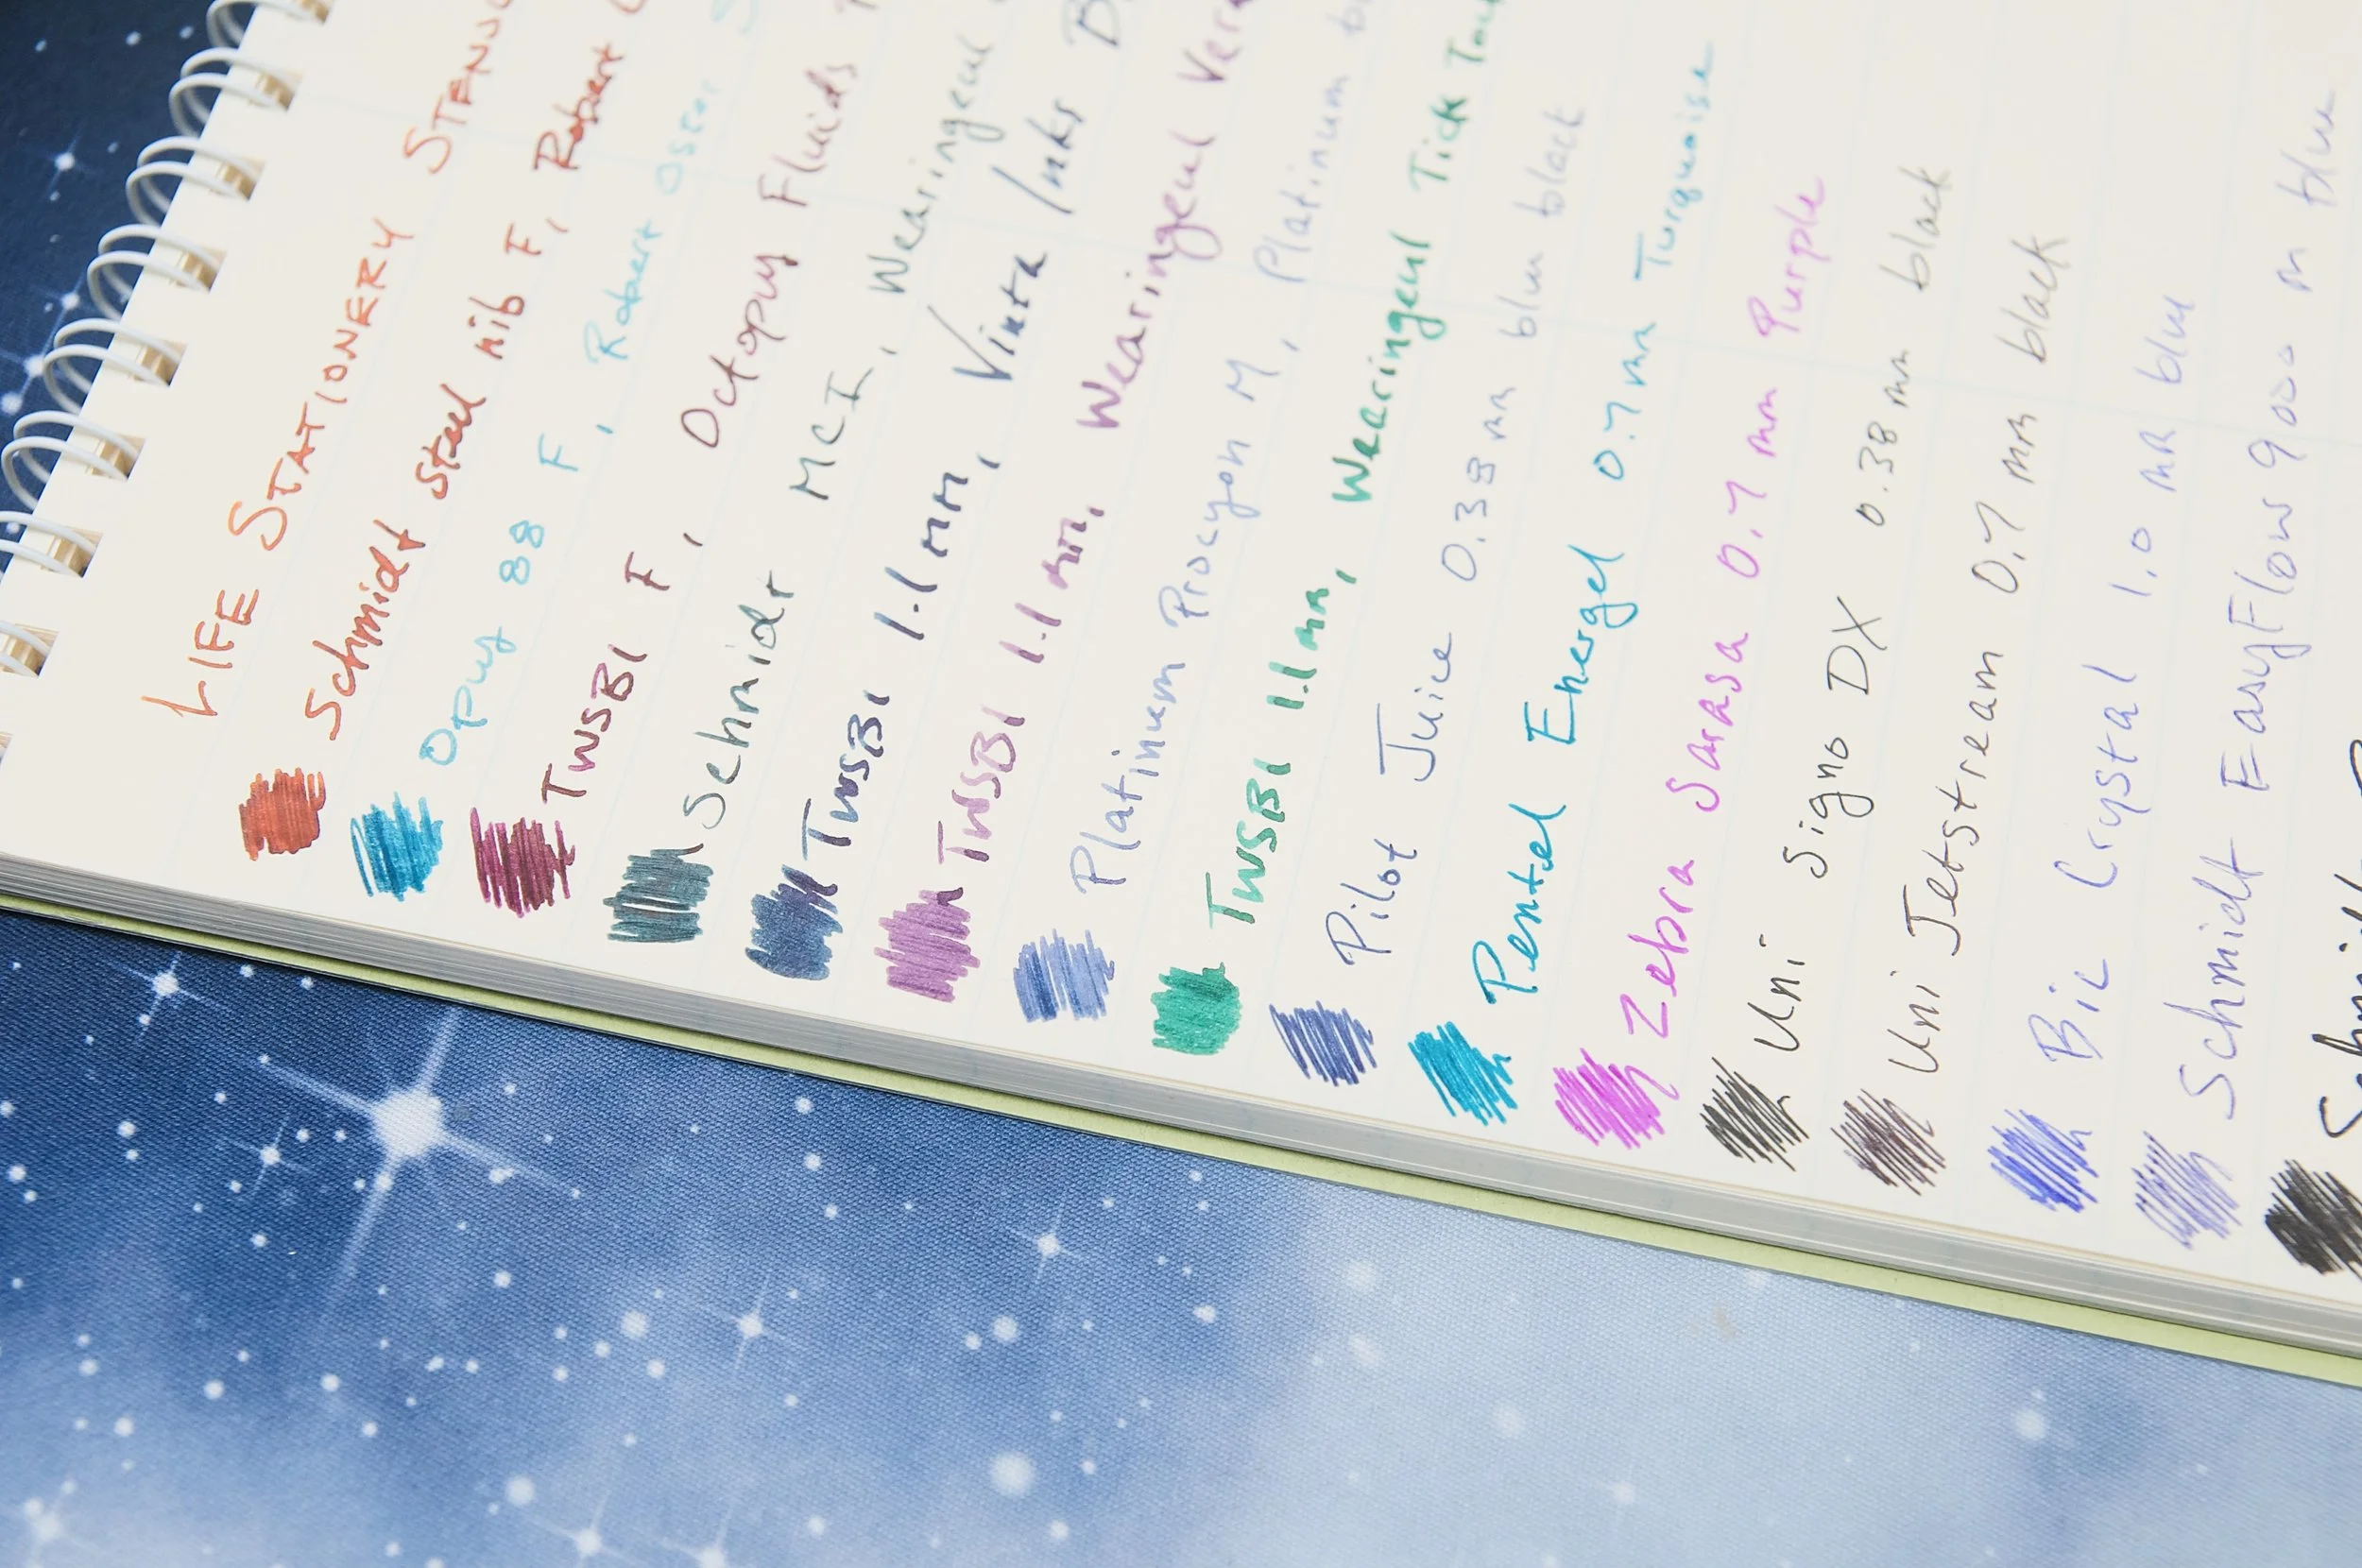 LIFE STATIONERY
Schmidt steel nib F, Robert
Opus 88 F, Robert Oster
TWSBI F, Octopus Fluids
Schmidt MCI, Wearingeul
TWSBI 1.1 mm, Vinta Inks
TWSBI 1.1 mm, Wearingeul
Platinum Procyon M, Platinum
TWSBI 1.1 mm, Wearingeul Tick
Pilot Juice 0.38 mm blue black
Pentel Energel 0.7 mm Turquoise
Zebra Sarasa 0.7 mm Purple
Uni Signo DX 0.38 mm black
Uni Jetstream 0.7 mm black
Bic Crystal 1.0 mm blue
Schmidt EasyFlow 9000 M blue
Schmidt